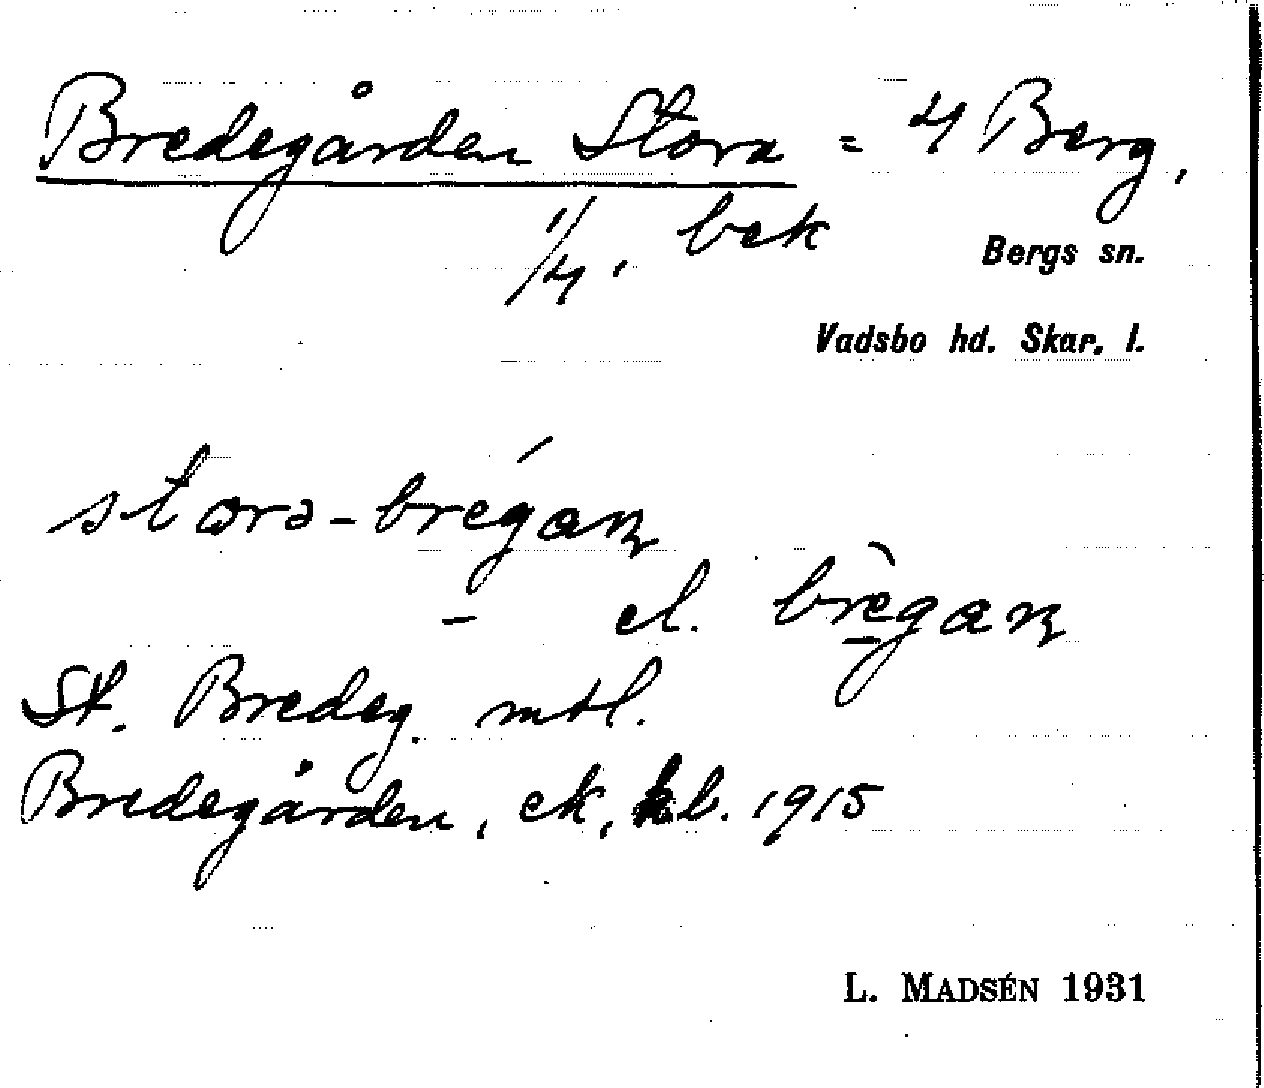 Bredegården Stora = 4 Berg,
1/4, bek
Bergs sn.
Vadsbo hd. Skar. l.
stora-bregaɳ
- el. brègaɳ
St. Bredeg. mtl.
Bredegården, ek, kb. 1915
L. MADSÉN 1931